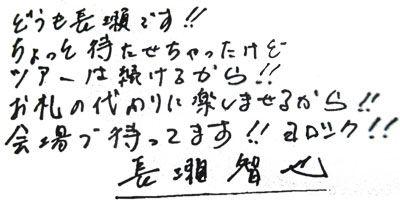 どうも長瀬です!!
ちょっと待たせちゃったけど
ツアーは続けるから!!
お札の代わりに楽しませるから!!
会場で待ってます!! ヨロシク!!
長瀬智也